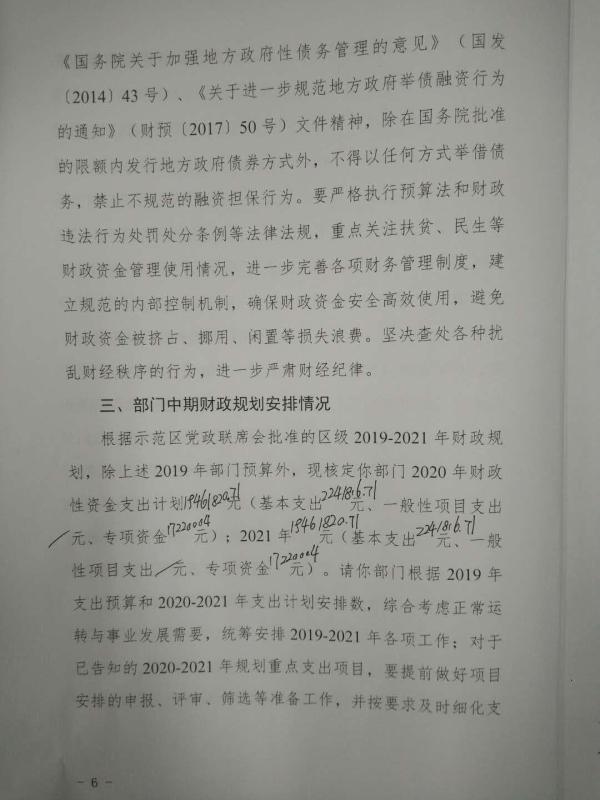 《国务院关于加强地方政府性债务管理的意见》（国发
〔2014〕43 号）、《关于进一步规范地方政府举债融资行为
的通知》（财预〔2017〕50 号）文件精神，除在国务院批准
的限额内发行地方政府债券方式外，不得以任何方式举借债
务，禁止不规范的融资担保行为。要严格执行预算法和财政
违法行为处罚处分条例等法律法规，重点关注扶贫、民生等
财政资金管理使用情况，进一步完善各项财务管理制度，建
立规范的内部控制机制，确保财政资金安全高效使用，避免
财政资金被挤占、挪用、闲置等损失浪费。坚决查处各种扰
乱财经秩序的行为，进一步严肃财经纪律。
三、部门中期财政规划安排情况
根据示范区党政联席会批准的区级 2019-2021 年财政规
划，除上述 2019 年部门预算外，现核定你部门 2020 年财政
性资金支出计划19461820.71元（基本支出2241816.71元、一般性项目支出
/元、专项资金17220004元）；2021 年19461820.71元（基本支出2241816.71元、一般
性项目支出/元、专项资金17220004元）。请你部门根据 2019 年
支出预算和 2020-2021 年支出计划安排数，综合考虑正常运
转与事业发展需要，统筹安排 2019-2021 年各项工作；对于
已告知的 2020-2021 年规划重点支出项目，要提前做好项目
安排的申报、评审、筛选等准备工作，并按要求及时细化支
- 6 -